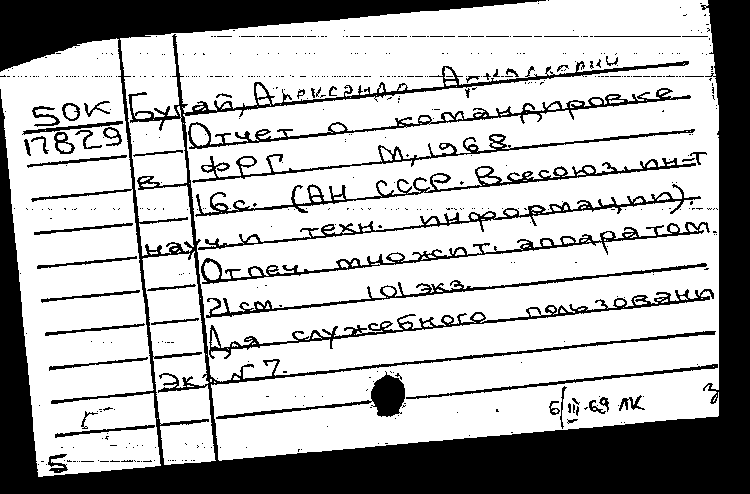 50К Бугай, Александр Аркадьевич
17829 Отчет о командировке
в ФРГ. М., 1968.
16с. (АН СССР. Всесоюз. ин-т
науч. и техн. информации).
Отпеч. множит. аппаратом.
21 см. 101 экз.
Для служебного пользовани
Экз № 7.
6/III-69 ЛК
5